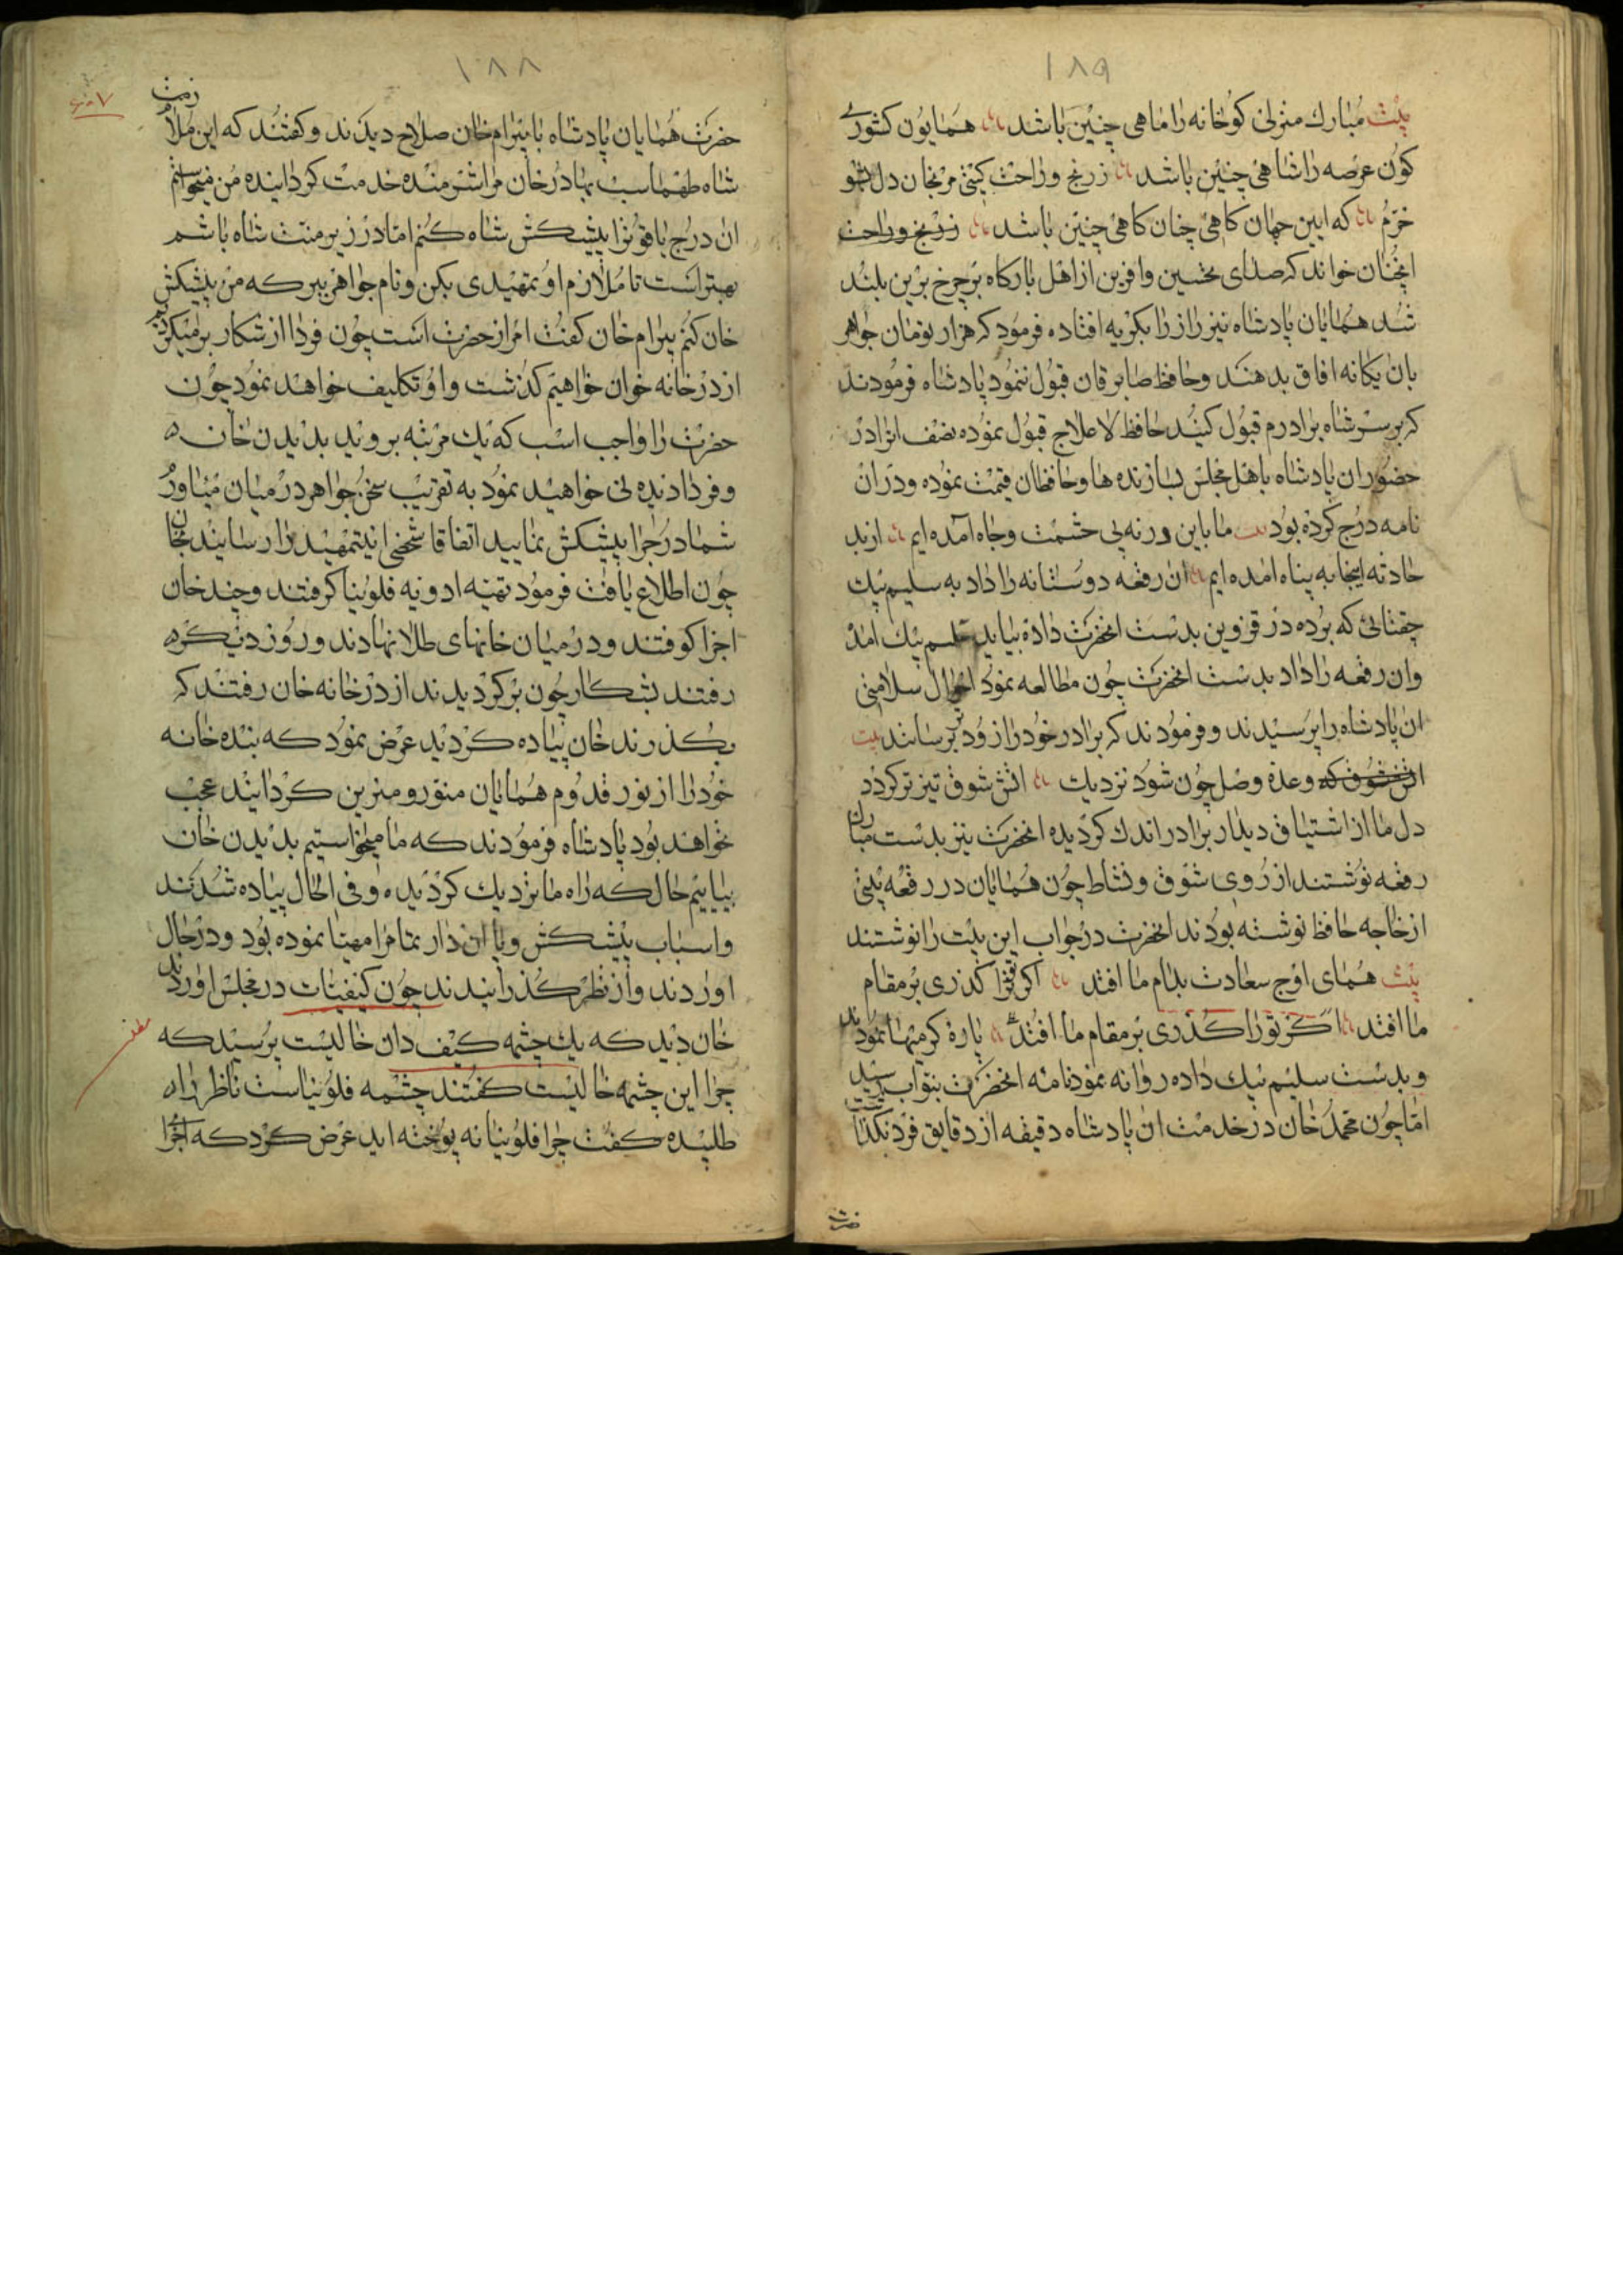 ۱۸۹
بیت مبارک منزلی کوخانه را ماهی چنین باشد همایون کشوری
کون عرصه را شاهی چنین باشد ز رنج و راحت کیتی مرنجان دل مشو
خرم که ایین جهان کاهی چنان کاهی چنین باشد ز رنج و راحت
انچنان خواند که صدای تحسین و افرین از اهل بارکاه بر چرخ برین بلند
شد همایان پادشاه نیز زار زار بکریه افتاده فرمود که هزار تومان جواهر
بان یکانه افاق بدهند و حافظ صابر قان قبول ننمود پادشاه فرمودند
که بر سر شاه برادرم قبول کنید حافظ لاعلاج قبول نموده نصف انرا در
حضور ان پادشاه باهل مجلس بسازنده ها و حافظان قیمت نموده و دران
نامه درج کرده بود بیت ما باین ورنه پی حشمت و جاه آمده ایم ازبد
حادثه اینجا به پناه امده ایم ان رقعه دوستانه را داد به سلیم بیک
چقتائی که برده در قزوین بدست انحضرت داده بیاید سلیم بیک امد
وان رقعه را داد بدست انحضرت چون مطالعه نمود احوال سلامتی
ان پادشاه را پرسیدند و فرمودند که برادر خود را زودتر برسانند بیت
اتش شوق که وعده وصل چون شود نزدیک اتش شوق تیز تر کردد
دل ما از اشتیاق دیدار برادر اندک کردیده انحضرت نیز بدست مبارک
رقعه نوشتند از روی شوق و نشاط چون همایان در رقعه بیتی
از خاجه حافظ نوشته بودند انحضرت در جواب این بیت را نوشتند
بیت همای اوج سعادت بدام ما افتد اکر ترا کذری بر مقام
ما افتد اکر تو را کذری بر مقام ما افتد پاره کرمیها نمودند
و بدست سلیم بیک داده روانه نمود نامه انحضرت بنواب رسید
اما چون محمد خان در خدمت ان پادشاه دقیقه از دقایق فرد نکذاشت
حضرت
۱۸۸
حضرت همایان پادشاه با بیرام خان صلاح دیدند و کفتند که این ملازمت
شاه طهماسب بهادر خان مرا شرمنده خدمت کردانیده من میخواستم
ان درج یاقوت را پیشکش شاه کنم اما در زیر منت شاه باشم
بهتر است تا ملازم او تمهیدی بکن و نام جواهر ببر که من پیشکش
خان کنم بیرام خان کفت امر از حضرت است چون فردا از شکار برمیکردیم
از در خانه خوان خواهیم کذشت و او تکلیف خواهد نمود چون
حضرت را واجب اسب که یک مرتبه بروید بدیدن خان
و فردا دیده لی خواهید نمود به تقریب سخن جواهر در میان میاور
شما درج را پیشکش نمایید اتفاقا شخصی این تمهید را رسانید بخان
چون اطلاع یافت فرمود تهیه ادویه فلونیا کرفتند و چند خان
اجزا کوفتند و در میان خانهای طلا نهادند و روز دیکر
رفتند بشکار چون بر کردیدند از در خانه خان رفتند که
بکذرند خان پیاده کردید عرض نمود که بنده خانه
خود را از نور قدوم همایان منور و مزین کردانید عجب
نخواهد بود پادشاه فرمودند که ما میخواستیم بدیدن خان
بیاییم حال که راه ما نزدیک کردیده و فی الحال پیاده شدند
و اسباب پیشکش و پا انداز تمام را مهیا نموده بود و در حال
اوردند و از نظر کذرانیدند چون کیفیات در مجلس اوردند
خان دید که یک چشمه کیف دان خالیست پرسید که
چرا این چشمه خالیست کفتند چشمه فلونیا است ناظر را
طلبیده کفت چرا فلونیا نه پوخته اید عرض کرد که اجزا